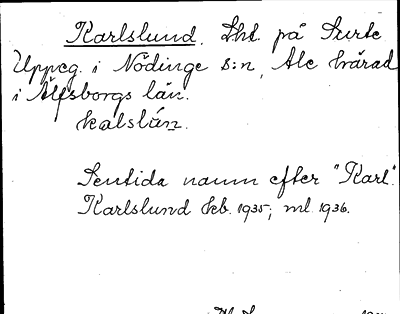 Karlslund. Lht. på Surte
Uppeg. i Nödinge s:n, Ale härad
i Älfsborgs län.
kalslún.
Sentida namn efter "Karl".
Karlslund kb. 1935; ml. 1936.